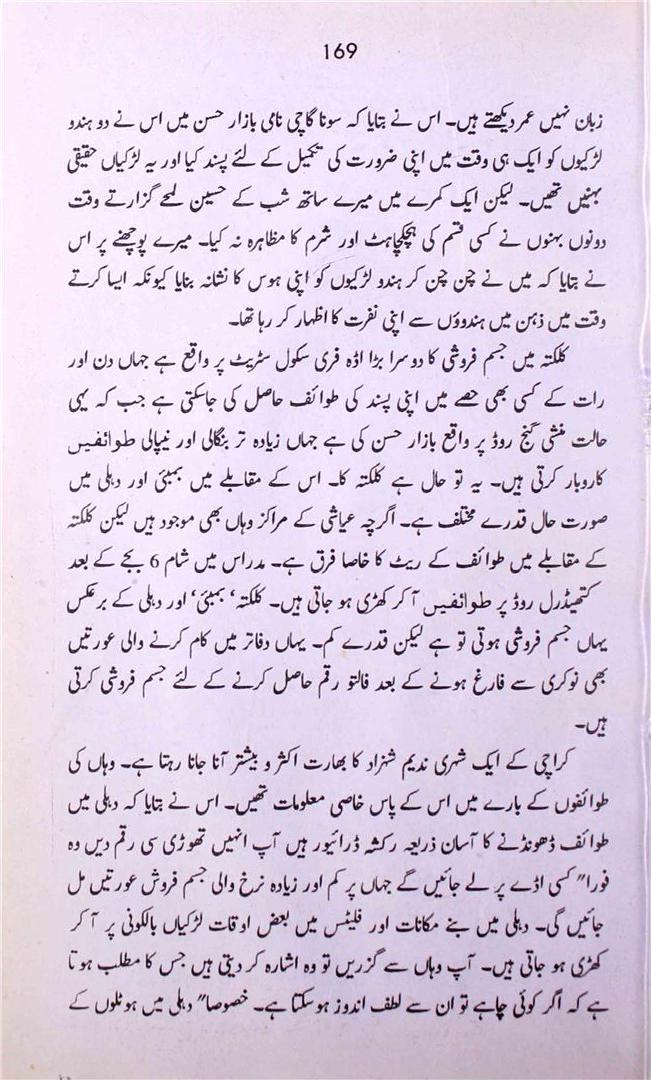 169
زبان نہیں عمر دیکھتے ہیں۔ اس نے بتایا کہ سونا گاچی نامی بازار حسن میں اس نے دو ہندو
لڑکیوں کو ایک ہی وقت میں اپنی ضرورت کی تکمیل کے لئے پسند کیا اور یہ لڑکیاں حقیقی
بہنیں تھیں۔ لیکن ایک کمرے میں میرے ساتھ شب کے حسین لمحے گزارتے وقت
دونوں بہنوں نے کسی قسم کی ہچکچاہٹ اور شرم کا مظاہرہ نہ کیا۔ میرے پوچھنے پر اس
نے بتایا کہ میں نے چن چن کر ہندو لڑکیوں کو اپنی ہوس کا نشانہ بنایا کیونکہ ایسا کرتے
وقت میں ذہن میں ہندوؤں سے اپنی نفرت کا اظہار کر رہا تھا۔
کلکتہ میں جسم فروشی کا دوسرا بڑا اڈہ فری سکول سٹریٹ پر واقع ہے جہاں دن اور
رات کے کسی بھی حصے میں اپنی پسند کی طوائف حاصل کی جاسکتی ہے جب کہ یہی
حالت منشی گنج روڈ پر واقع بازار حسن کی ہے جہاں زیادہ تر بنگالی اور نیپالی طوائفیں
کاروبار کرتی ہیں۔ یہ تو حال ہے کلکتہ کا۔ اس کے مقابلے میں بمبئی اور دہلی میں
صورت حال قدرے مختلف ہے۔ اگرچہ عیاشی کے مراکز وہاں بھی موجود ہیں لیکن کلکتہ
کے مقابلے میں طوائف کے ریٹ کا خاصا فرق ہے۔ مدراس میں شام 6 بجے کے بعد
کتھیڈرل روڈ پر طوائفیں آ کر کھڑی ہو جاتی ہیں۔ کلکتہ‘ بمبئی‘ اور دہلی کے برعکس
یہاں جسم فروشی ہوتی تو ہے لیکن قدرے کم۔ یہاں دفاتر میں کام کرنے والی عورتیں
بھی نوکری سے فارغ ہونے کے بعد فالتو رقم حاصل کرنے کے لئے جسم فروشی کرتی
ہیں۔
کراچی کے ایک شہری ندیم شہزاد کا بھارت اکثر و بیشتر آنا جانا رہتا ہے۔ وہاں کی
طوائفوں کے بارے میں اس کے پاس خاصی معلومات تھیں۔ اس نے بتایا کہ دہلی میں
طوائف ڈھونڈنے کا آسان ذریعہ رکشہ ڈرائیور ہیں آپ انہیں تھوڑی سی رقم دیں وہ
فورا" کسی اڈے پر لے جائیں گے جہاں پر کم اور زیادہ نرخ والی جسم فروش عورتیں مل
جائیں گی۔ دہلی میں بنے مکانات اور فلیٹس میں بعض اوقات لڑکیاں بالکونی پر آ کر
کھڑی ہو جاتی ہیں۔ آپ وہاں سے گزریں تو وہ اشارہ کر دیتی ہیں جس کا مطلب ہوتا
ہے کہ اگر کوئی چاہے تو ان سے لطف اندوز ہوسکتا ہے۔ خصوصا" دہلی میں ہوٹلوں کے